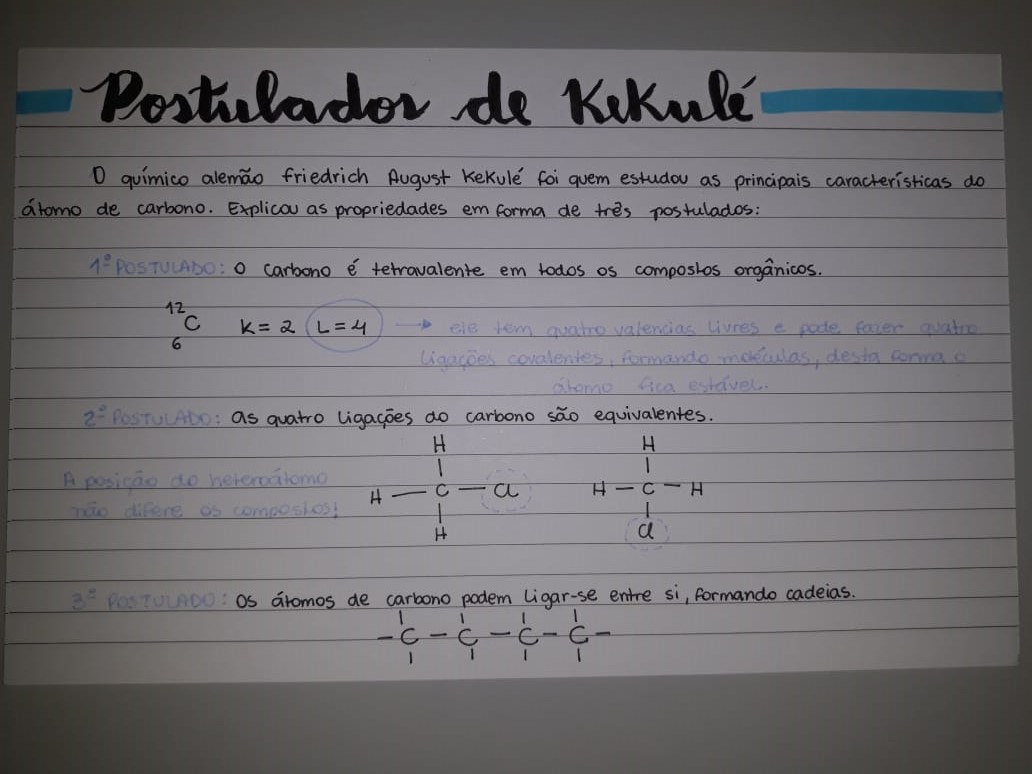 Postulados de Kekulé
O químico alemão Friedrich August Kekulé foi quem estudou as principais características do
átomo de carbono. Explicou as propriedades em forma de três postulados:
1º POSTULADO: O carbono é tetravalente em todos os compostos orgânicos.
12
C K = 2 L = 4 → ele tem quatro valencias livres e pode fazer quatro
6
ligações covalentes, formando moléculas, desta forma o
átomo fica estável.
2º POSTULADO: As quatro ligações do carbono são equivalentes.
H H
A posição do heteroátomo
H — C — Cl H — C — H
não difere os compostos!
H Cl
3º POSTULADO: Os átomos de carbono podem ligar-se entre si, formando cadeias.
— C — C — C — C —